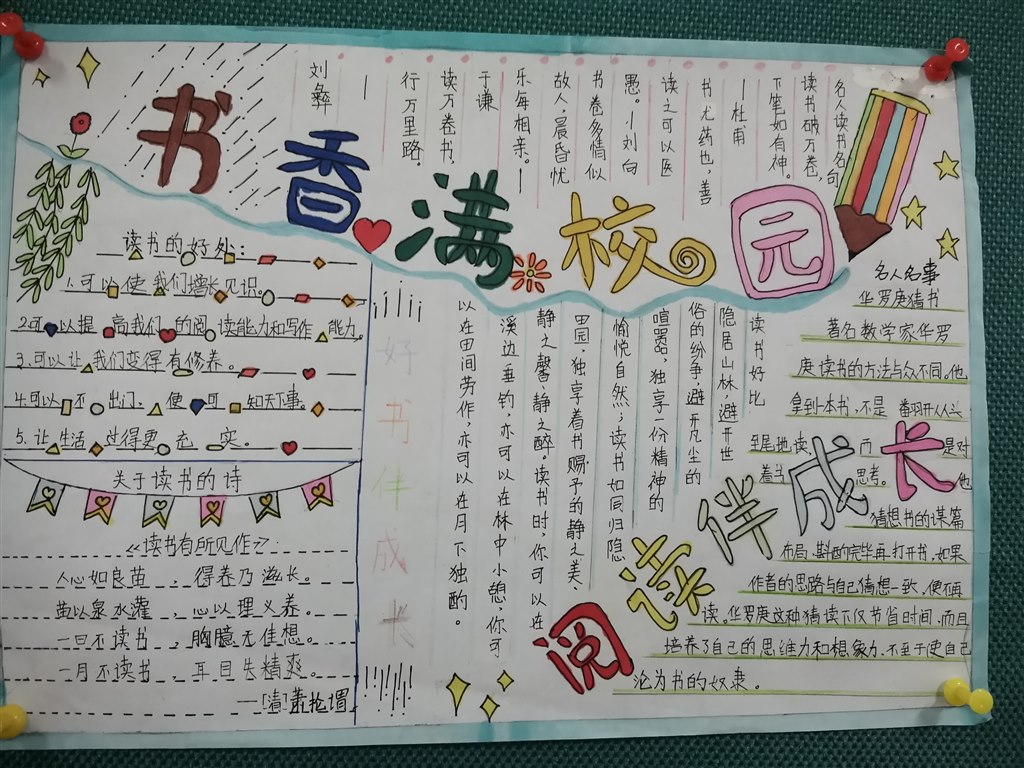 书香满校园
名人读书名句
读书破万卷,
下笔如有神。
—杜甫
书尤药也,善
读之可以医
愚。—刘向
书卷多情似
故人,晨昏忧
乐每相亲。—
于谦
读万卷书,
行万里路。
—
刘彝
读书的好处:
1.可以使我们增长见识。
2.可以提高我们的阅读能力和写作能力.
3.可以让我们变得有修养。
4.可以不出门,使可知天下事。
5.让生活过得更充实。
关于读书的诗
《读书有所见作》
人心如良苗,得养乃滋长。
苗以泉水灌,心以理义养。
一日不读书,胸臆无佳想。
一月不读书,耳目失精爽。
—[清]萧抡谓
好书伴成长
读书好比
隐居山林,避开世
俗的纷争,避开凡尘的
喧嚣,独享一份精神的
愉悦自然;读书如同归隐
田园,独享着书赐予的静之美、
静之馨、静之醉。读书时,你可以在
溪边垂钓,亦可以在林中小憩,你可
以在田间劳作,亦可以在月下独酌。
名人名事
华罗庚猜书
著名数学家华罗
庚读书的方法与众不同。他
拿到一本书,不是翻开从头
至尾地读,而是对
着书思考。他
猜想书的谋篇
布局,斟酌完毕再打开书,如果
作者的思路与自己猜想一致,便不再
读。华罗庚这种猜读不仅节省时间,而且
培养了自己的思维力和想象力,不至于使自己
沦为书的奴隶。
阅读伴成长